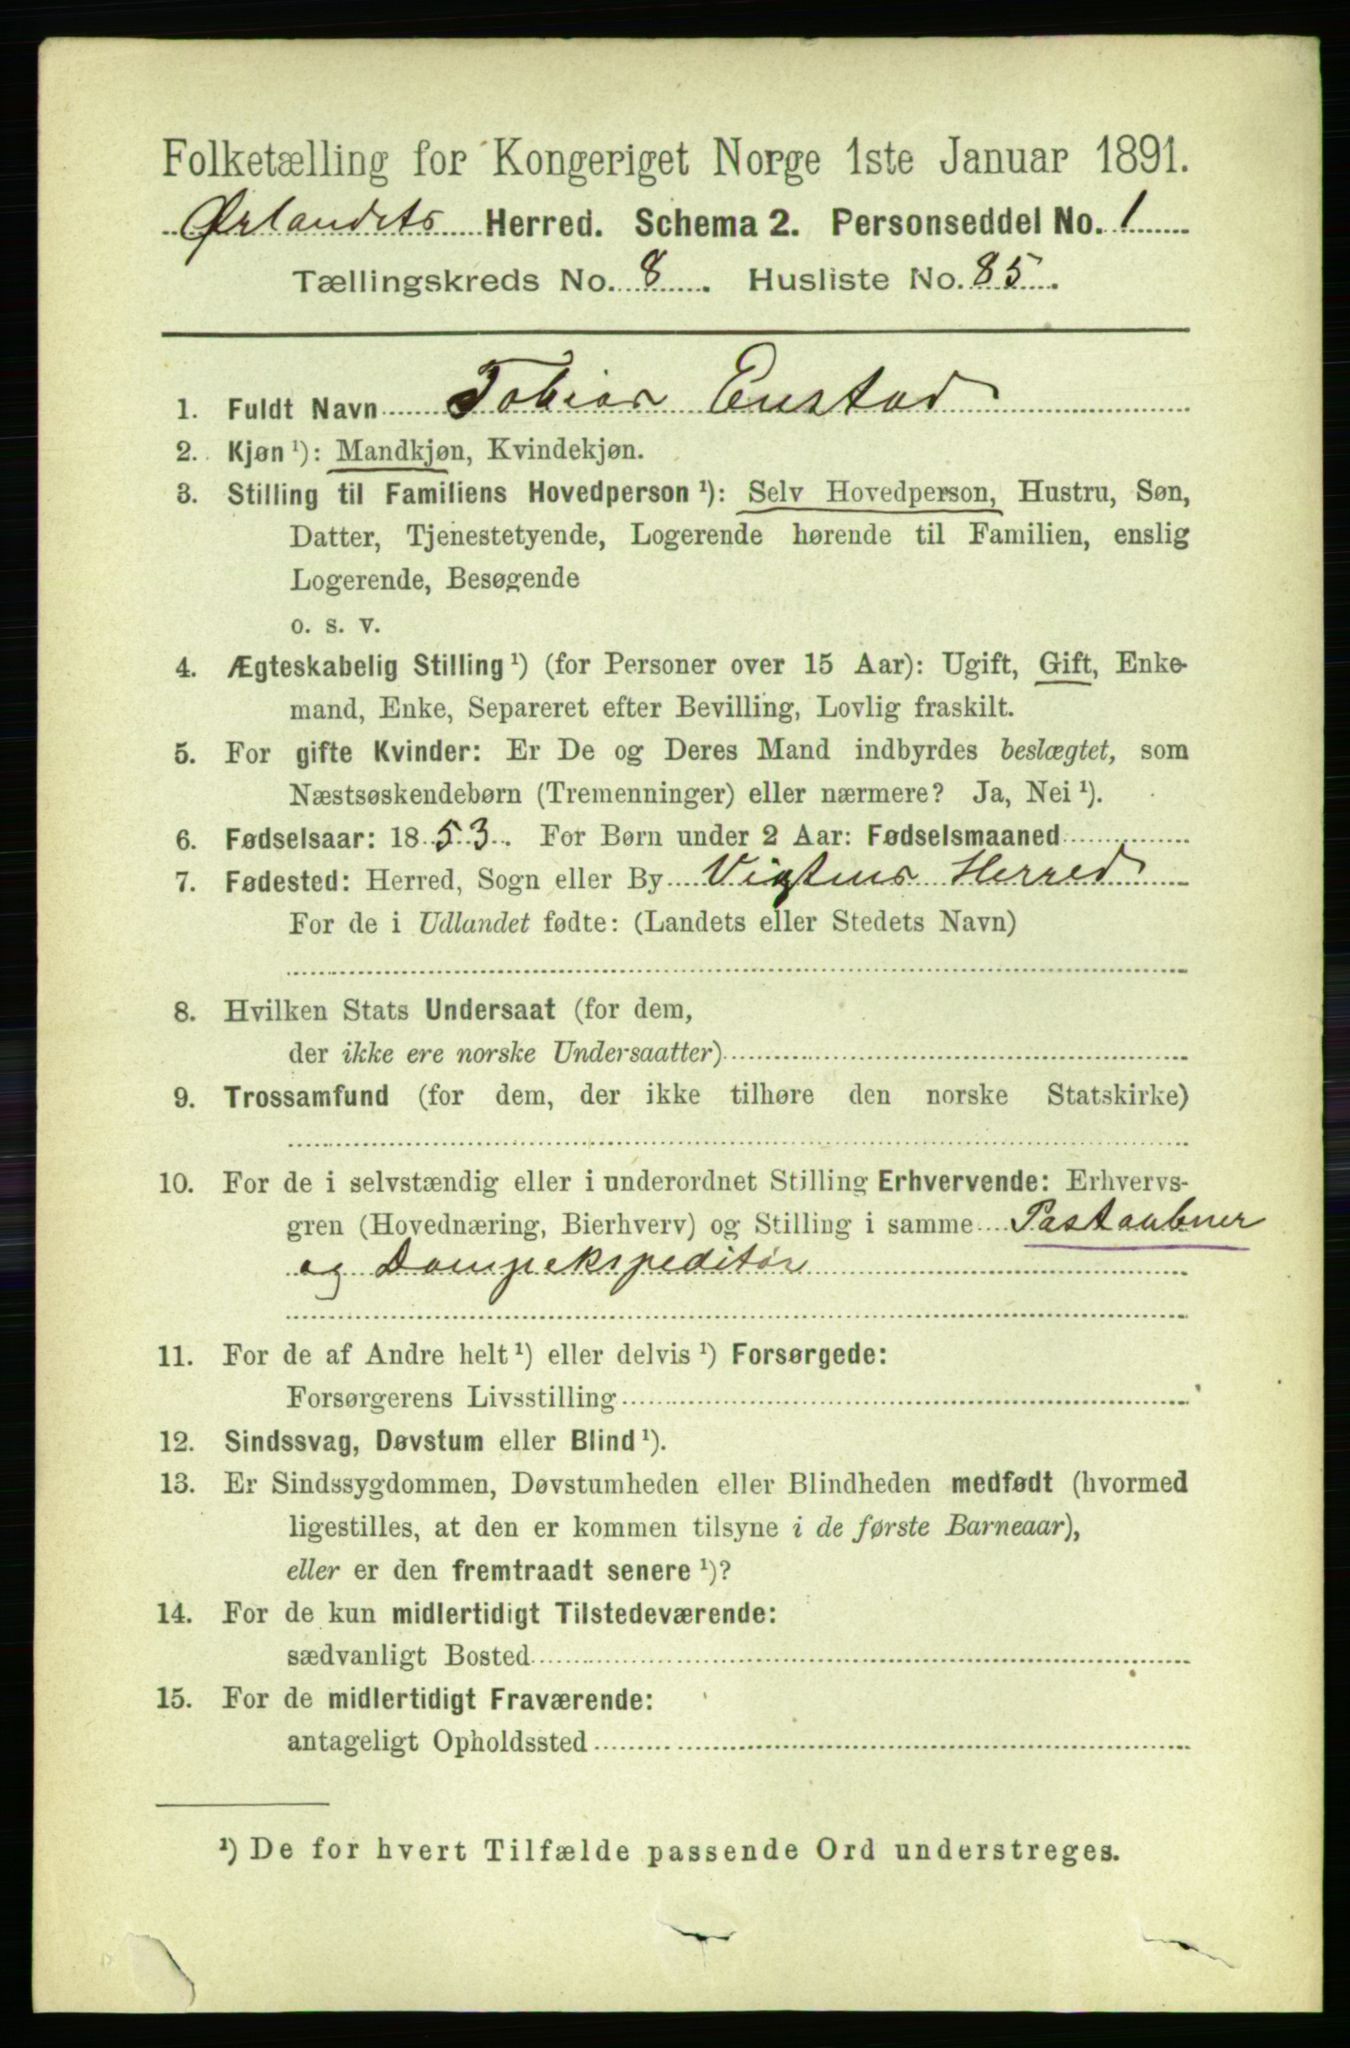 Folketælling for Kongeriget Norge 1ste Januar 1891.
Ørlandets Herred. Schema 2. Personseddel No. 1
Tællingskreds No. 8. Husliste No. 85.
1. Fuldt Navn Tobias Enstad
2. Kjøn ¹): Mandkjøn, Kvindekjøn.
3. Stilling til Familiens Hovedperson ¹): Selv Hovedperson, Hustru, Søn,
Datter, Tjenestetyende, Logerende hørende til Familien, enslig
Logerende, Besøgende
o. s. v.
4. Ægteskabelig Stilling ¹) (for Personer over 15 Aar): Ugift, Gift, Enke-
mand, Enke, Separeret efter Bevilling, Lovlig fraskilt.
5. For gifte Kvinder: Er De og Deres Mand indbyrdes beslægtet, som
Næstsøskendebørn (Tremenninger) eller nærmere? Ja, Nei ¹).
6. Fødselsaar: 1853. For Børn under 2 Aar: Fødselsmaaned
7. Fødested: Herred, Sogn eller By Vigtens Herred
For de i Udlandet fødte: (Landets eller Stedets Navn)
8. Hvilken Stats Undersaat (for dem,
der ikke ere norske Undersaatter)
9. Trossamfund (for dem, der ikke tilhøre den norske Statskirke)
10. For de i selvstændig eller i underordnet Stilling Erhvervende: Erhvervs-
gren (Hovednæring, Bierhverv) og Stilling i samme Postaabner
og Dampekspeditør
11. For de af Andre helt ¹) eller delvis ¹) Forsørgede:
Forsørgerens Livsstilling
12. Sindssvag, Døvstum eller Blind ¹).
13. Er Sindssygdommen, Døvstumheden eller Blindheden medfødt (hvormed
ligestilles, at den er kommen tilsyne i de første Barneaar),
eller er den fremtraadt senere ¹)?
14. For de kun midlertidigt Tilstedeværende:
sædvanligt Bosted
15. For de midlertidigt Fraværende:
antageligt Opholdssted
¹) De for hvert Tilfælde passende Ord understreges.